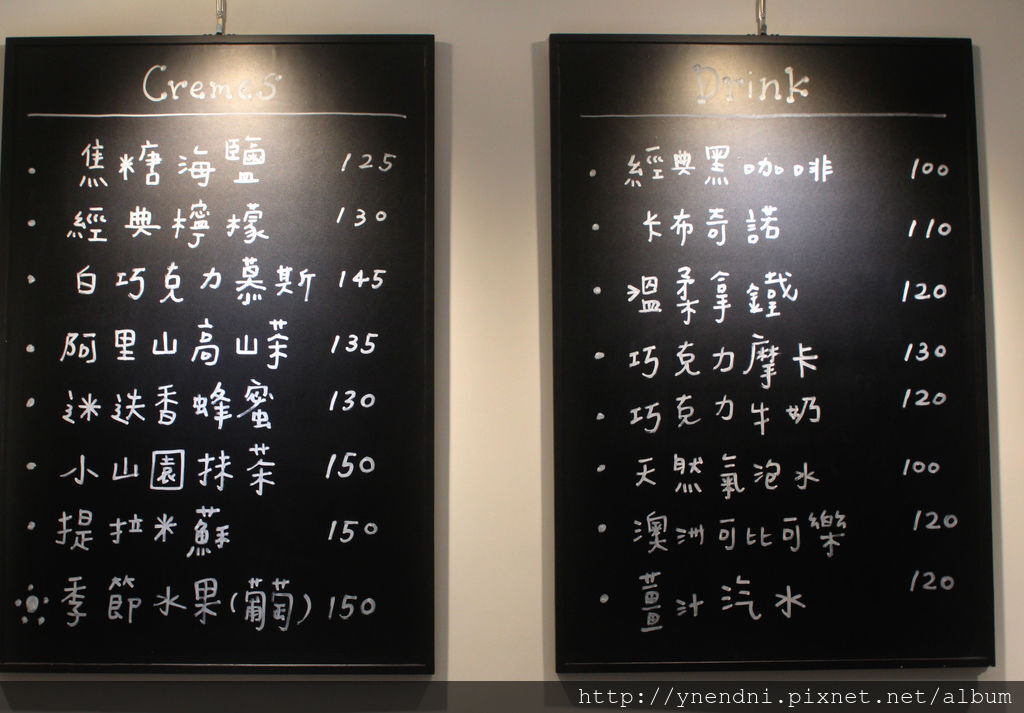 Cremes
焦糖海鹽 125
經典檸檬 130
白巧克力慕斯 145
阿里山高山茶 135
迷迭香蜂蜜 130
小山園抹茶 150
提拉米蘇 150
季節水果(葡萄) 150
Drink
經典黑咖啡 100
卡布奇諾 110
溫柔拿鐵 120
巧克力摩卡 130
巧克力牛奶 120
天然氣泡水 100
澳洲可比可樂 120
薑汁汽水 120
http://ynendni.pixnet.net/album